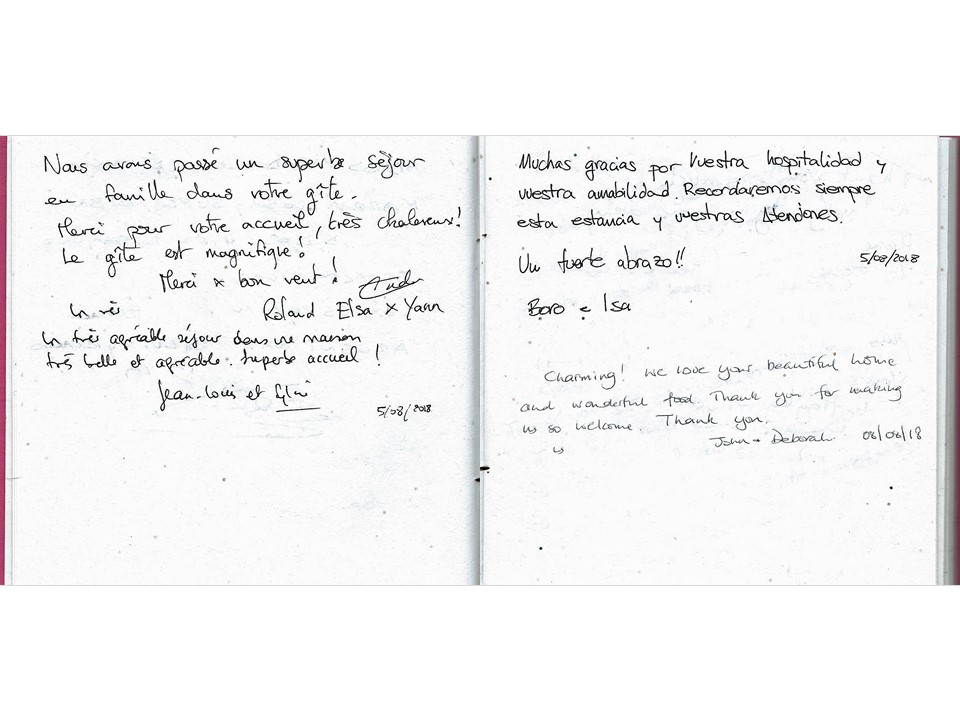 Nous avons passé un superbe séjour
en famille dans votre gîte.
Merci pour votre accueil, très chaleureux!
Le gîte est magnifique!
Merci x bon vent!
Roland Elsa x Yann
Un très
Un très agréable séjour dans une maison
très belle et agréable. Superbe accueil !
Jean-Louis et
5/08/2018
Muchas gracias por vuestra hospitalidad y
vuestra amabilidad. Recordaremos siempre
esta estancia y vuestras Atenciones.
Un fuerte abrazo!!
5/08/2018
Boro e Isa
Charming! We love your beautiful home
and wonderful food. Thank you for making
us so welcome. Thank you.
John + Deborah. 08/08/18